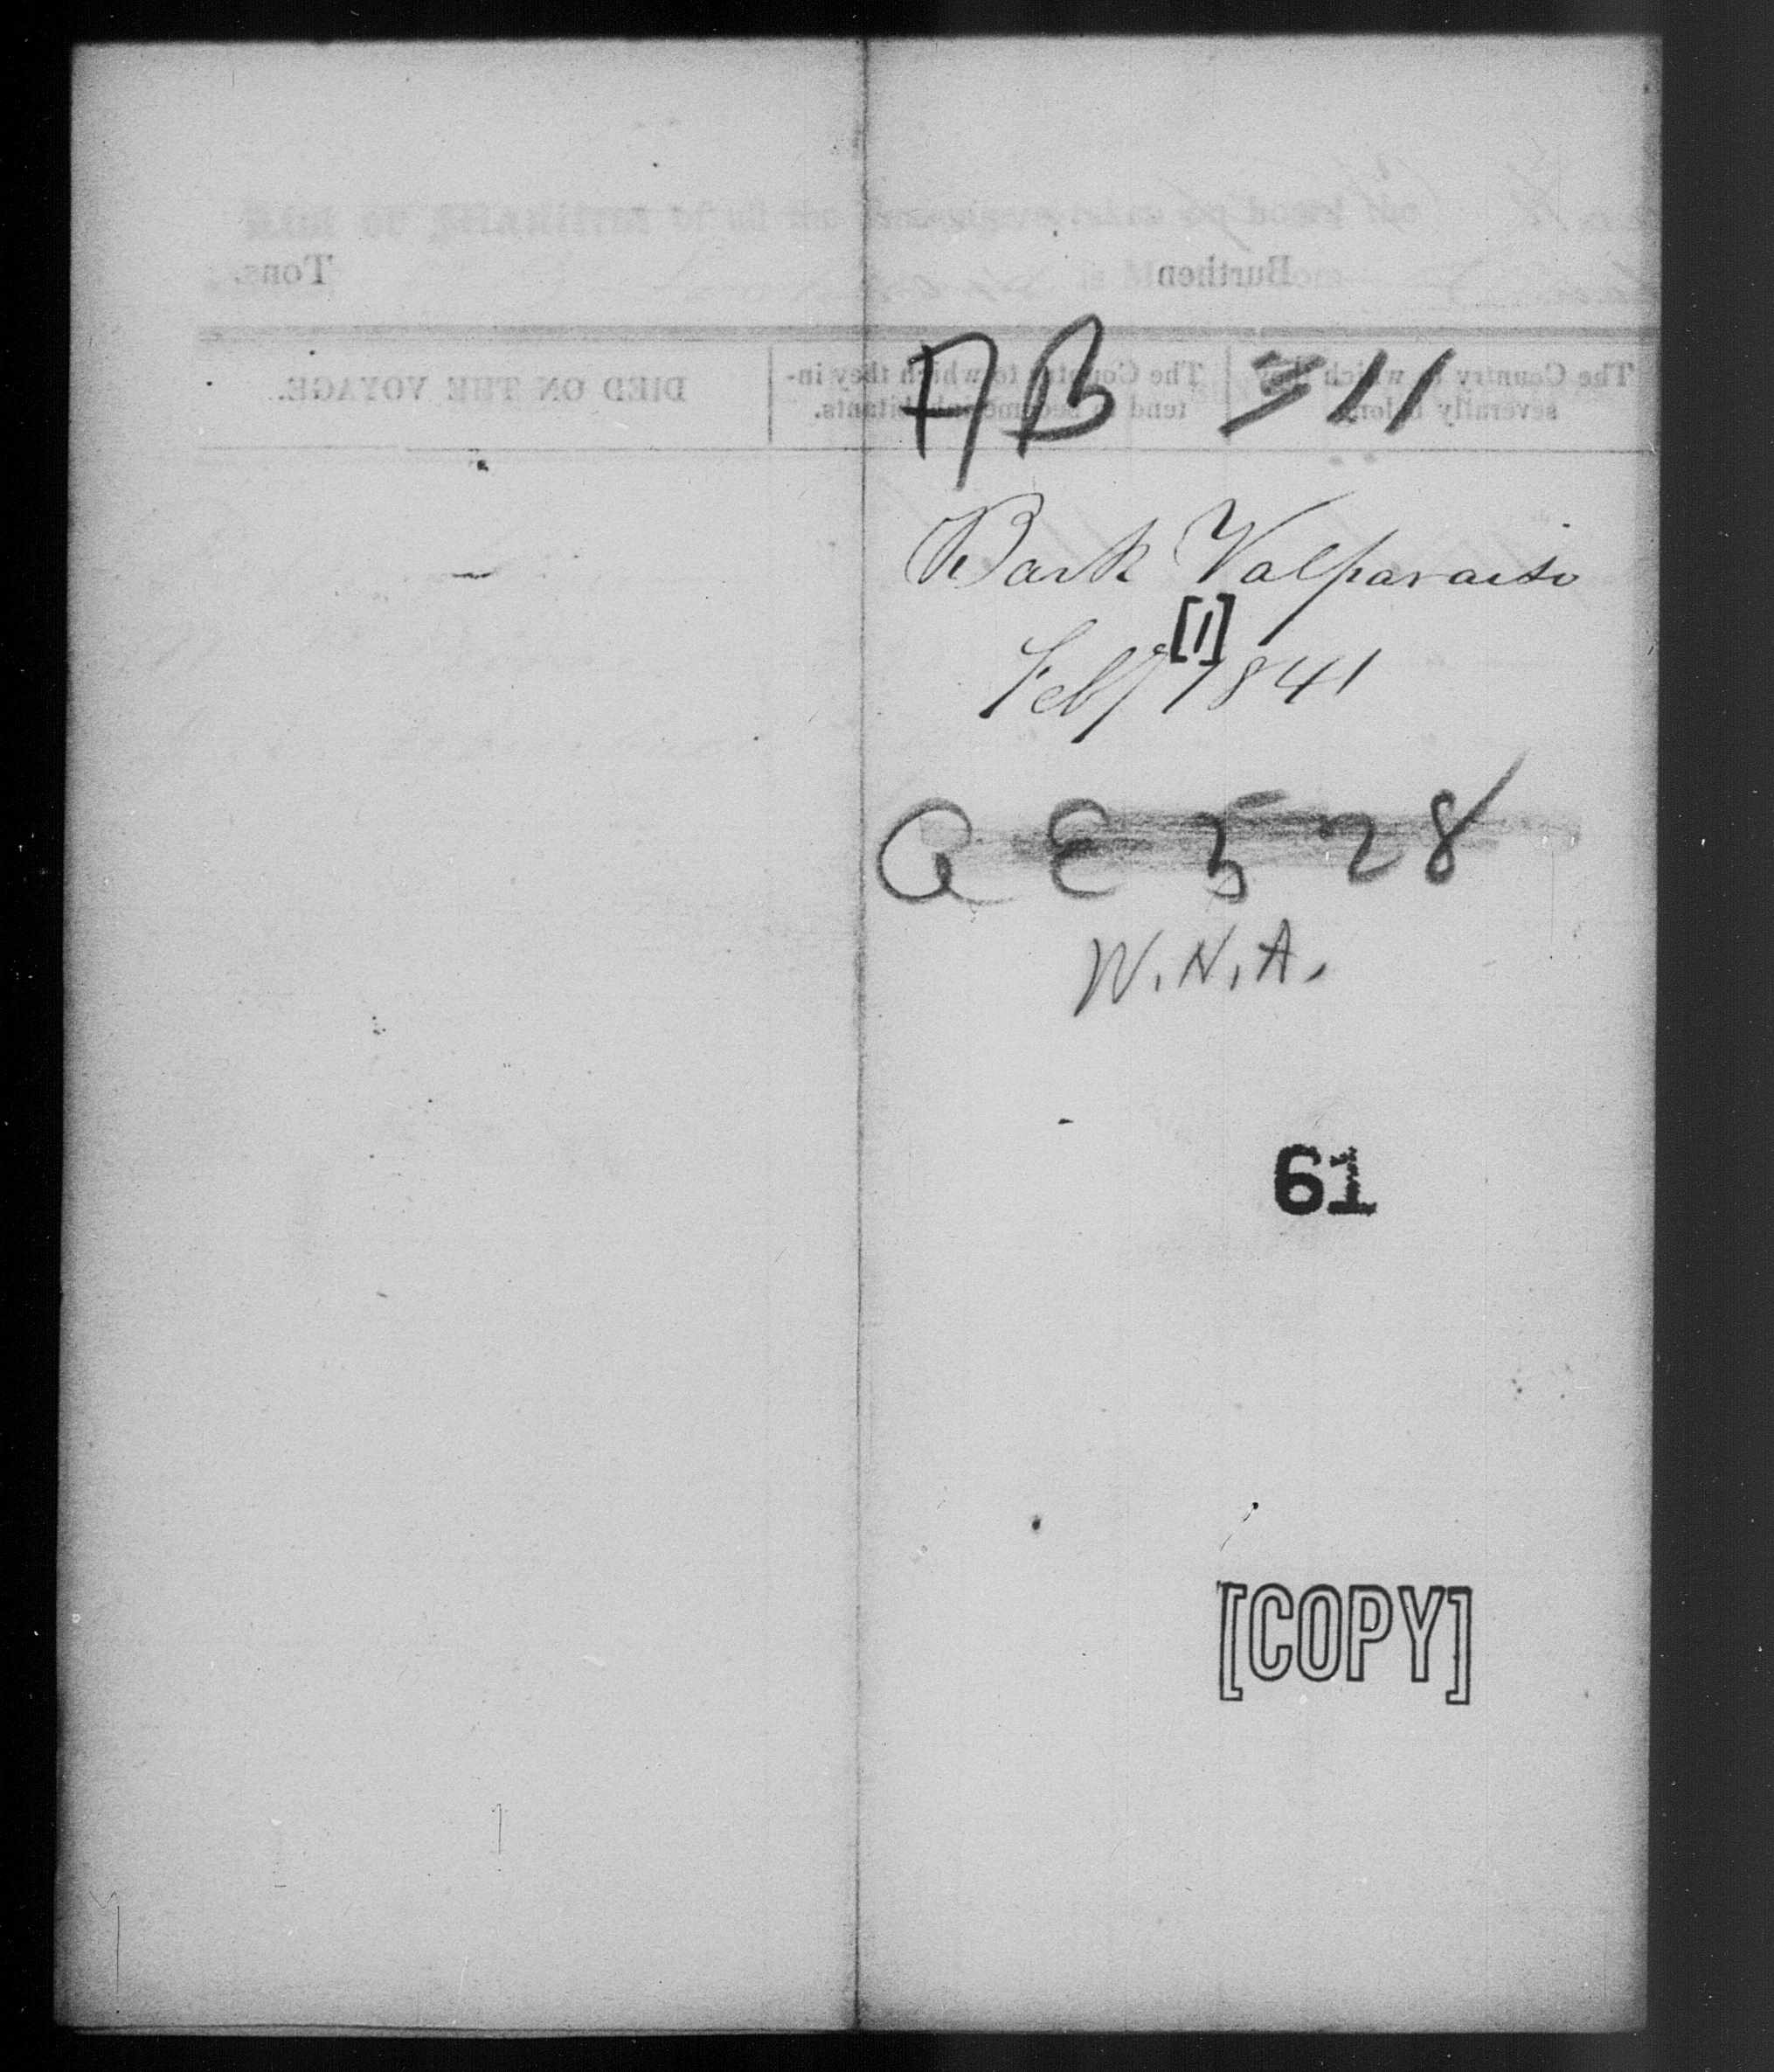 Tons.
Burthen
DIED ON THE VOYAGE.
The Country to which they in-
tend to become inhabitants.
The Country to which they
severally belong
AB 11
Bark Valparaiso
[1]
Feby 1841
A E 5 28
W.N.A.
61
[COPY]